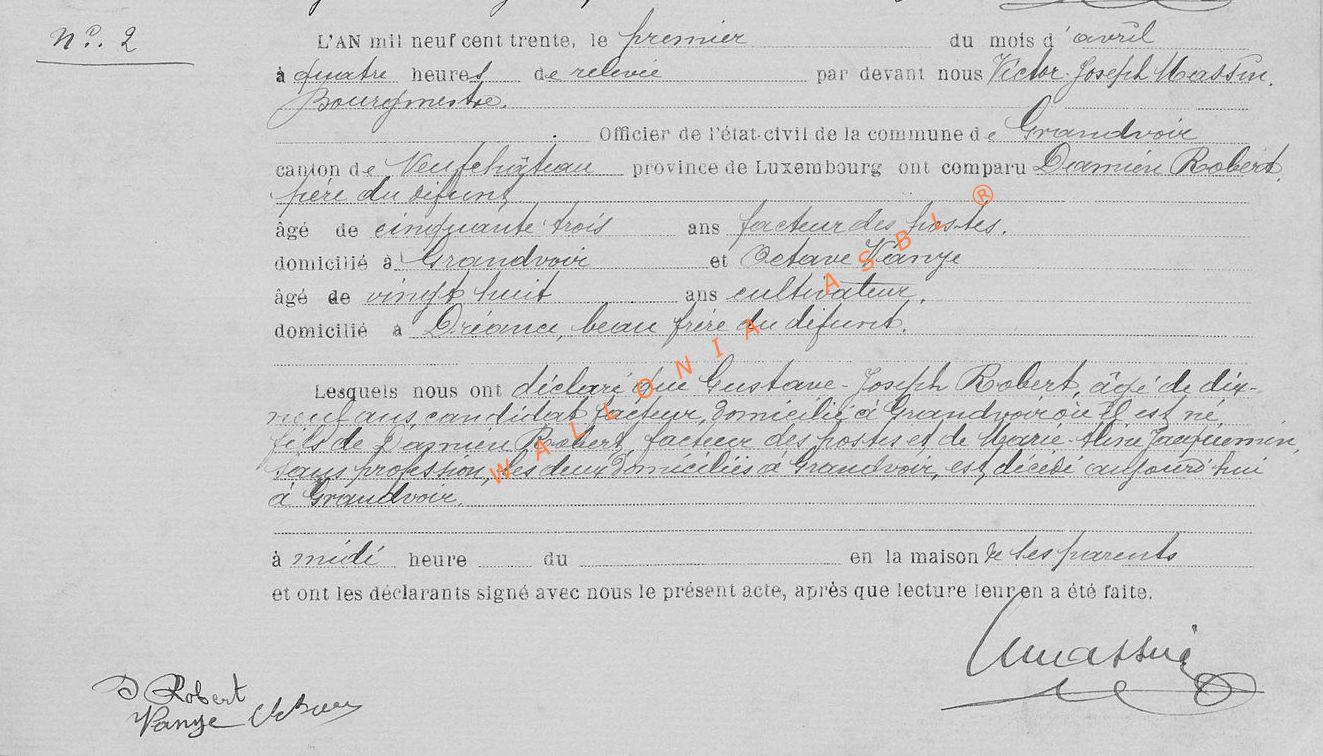 N°. 2
L'AN mil neuf cent trente, le premier du mois d'avril
à quatre heures de relevée par devant nous Victor-Joseph Massin,
Bourgmestre.
Officier de l'état-civil de la commune de Grandvoir
canton de Neufchâteau province de Luxembourg ont comparu Damien Robert,
père du défunt
âgé de cinquante trois ans facteur des postes.
domicilié à Grandvoir et Octave Wanye
âgé de vingt huit ans cultivateur,
domicilié à beau frère du défunt.
Lesquels nous ont déclaré que Gustave-Joseph Robert, âgé de dix-
neuf ans, candidat facteur, domicilié à Grandvoir où il est né
fils de Damien Robert, facteur des postes et de Marie-Aline Jacquemin,
sans profession, les deux domiciliés à Grandvoir, est décédé aujourd'hui
à Grandvoir.
à midi heure du en la maison de ses parents
et ont les déclarants signé avec nous le présent acte, après que lecture leur en a été faite.
VMassin
D Robert
Wanye
WALLONIA ASBL ®